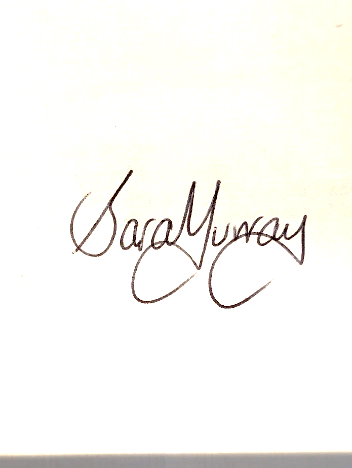 Sara Murray